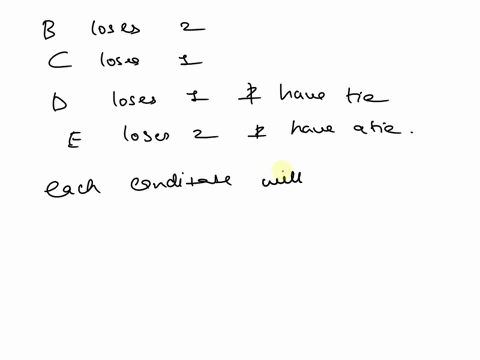 B loses 2
C loses 1
D loses 1 & have tie
E loses 2 & have a tie.
each will